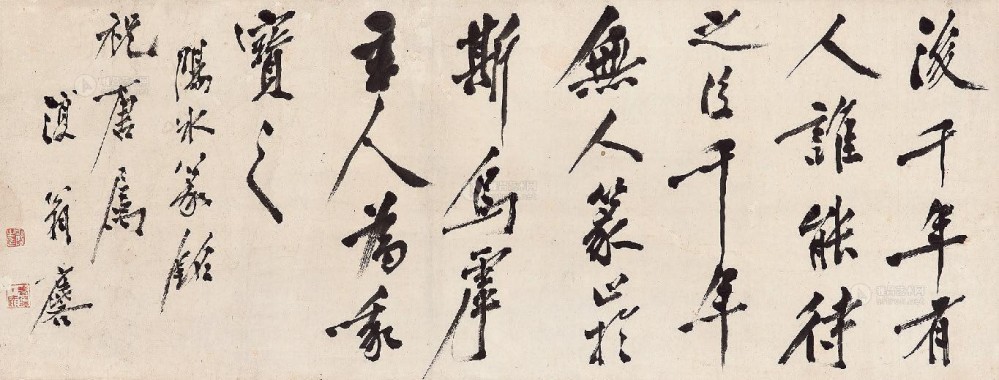 後千年有
人誰能待
之後千年
無人篆止於
斯烏虖
主人為我
寶之
陽冰篆銘
祝唐屬
翁書